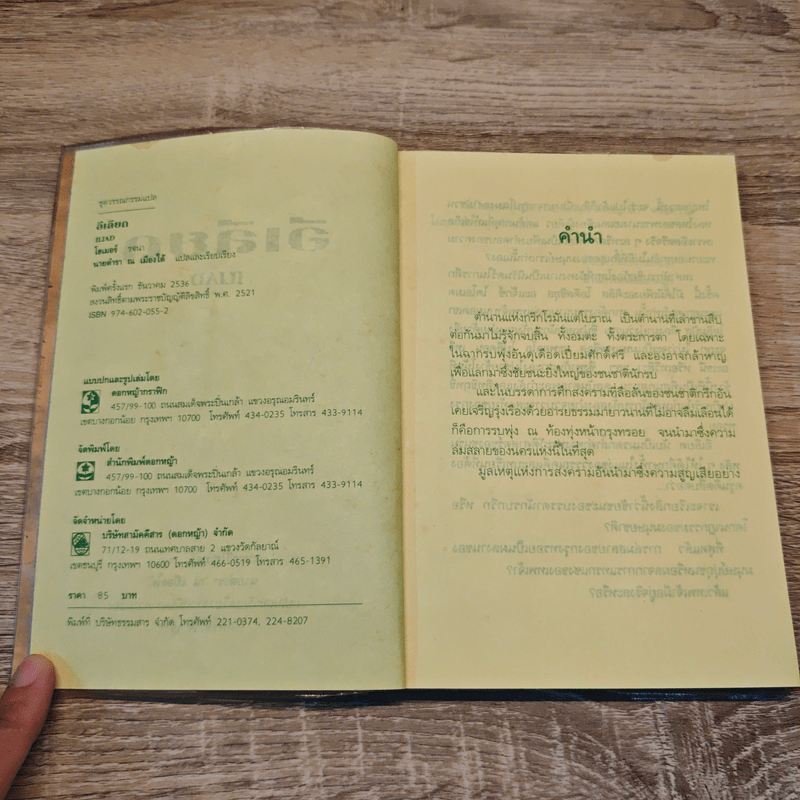 ชุดวรรณกรรมแปล
อีเลียด
ILIAD
โฮเมอร์ รจนา
นายตำรา ณ เมืองใต้ แปลและเรียบเรียง
พิมพ์ครั้งแรก ธันวาคม 2536
สงวนสิทธิ์ตามพระราชบัญญัติลิขสิทธิ์ พ.ศ. 2521
ISBN 974-602-055-2
แบบปกและรูปเล่มโดย
ดอกหญ้ากราฟิก
457/99-100 ถนนสมเด็จพระปิ่นเกล้า แขวงอรุณอมรินทร์
เขตบางกอกน้อย กรุงเทพฯ 10700 โทรศัพท์ 434-0235 โทรสาร 433-9114
จัดพิมพ์โดย
สำนักพิมพ์ดอกหญ้า
457/99-100 ถนนสมเด็จพระปิ่นเกล้า แขวงอรุณอมรินทร์
เขตบางกอกน้อย กรุงเทพฯ 10700 โทรศัพท์ 434-0235 โทรสาร 433-9114
จัดจำหน่ายโดย
บริษัทสามัคคีสาร (ดอกหญ้า) จำกัด
71/12-19 ถนนเทศบาลสาย 2 แขวงวัดกัลยาณ์
เขตธนบุรี กรุงเทพฯ 10600 โทรศัพท์ 466-0519 โทรสาร 465-1391
ราคา 85 บาท
พิมพ์ที่ บริษัทธรรมสาร จำกัด โทรศัพท์ 221-0374, 224-8207
คำนำ
ตำนานแห่งกรีกโรมันแต่โบราณ เป็นตำนานที่เล่าขานสืบ
ต่อกันมาไม่รู้จักจบสิ้น ทั้งอมตะ ทั้งตระการตา โดยเฉพาะ
ในฉากรบพุ่งอันดุเดือดเปี่ยมศักดิ์ศรี และองอาจกล้าหาญ
เพื่อแลกมาซึ่งชัยชนะยิ่งใหญ่ของชนชาตินักรบ
และในบรรดาการศึกสงครามที่ลือลั่นของชนชาติกรีกอัน
เคยเจริญรุ่งเรืองด้วยอารยธรรมมายาวนานที่ไม่อาจลืมเลือนได้
ก็คือการรบพุ่ง ณ ท้องทุ่งหน้ากรุงทรอย จนนำมาซึ่งความ
ล่มสลายของนครแห่งนี้ในที่สุด
มูลเหตุแห่งการสงครามอันนำมาซึ่งความสูญเสียอย่าง